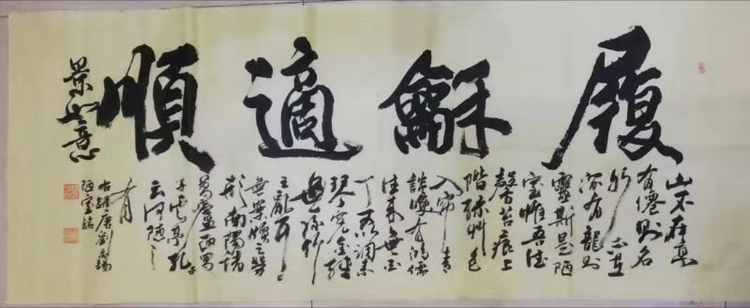 履龢適順
山不在高
有僊則名
水不在
深有龍則
靈斯是陋
室惟吾德
馨苔痕上
階綠艸色
入簾青
談笑有鴻儒
往來無白
丁可調素
琴閱金經
無絲竹
之亂耳
無案牘之勞
形南陽諸
葛廬西蜀
子雲亭孔子
云何陋之
有
右錄唐劉禹錫
陋室銘